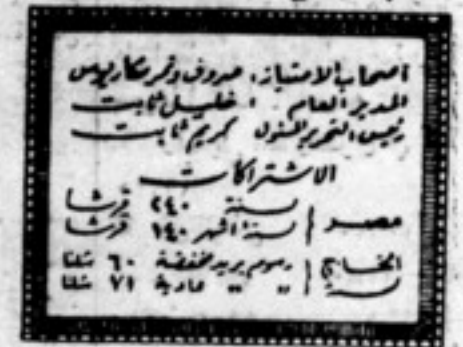 اصحاب الامتياز: صروف ونمر ومكاريوس
المدير العام : خليل ثابت
رئيس التحرير المسئول كريم ثابت
الاشتراكات
مصر سنة ٢٤٠ قرشا
ستة اشهر ١٤٠ قرشا
الخارج رسوم بريد مخفضة ٦٠ شلنا
سنة عادية ٧١ شلنا